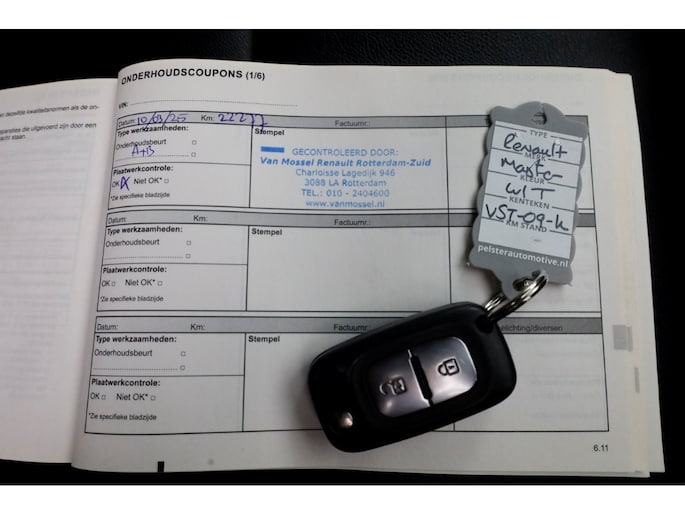 en dezelfde kwaliteitsnormen als de on-
paraties die uitgevoerd zijn door een
acht staan.
ONDERHOUDSCOUPONS (1/6)
VIN:
Datum: 10/03/25 Km: Factuurnr.:
Type werkzaamheden: Stempel
Onderhoudsbeurt
A+B
Plaatwerkcontrole:
OK Niet OK*
*Zie specifieke bladzijde
GECONTROLEERD DOOR:
Van Mossel Renault Rotterdam-Zuid
Charloisse Lagedijk 946
3088 LA Rotterdam
TEL.: 010 - 2404600
www.vanmossel.nl
Datum: Km: Factuurnr.:
Type werkzaamheden: Stempel
Onderhoudsbeurt
Plaatwerkcontrole:
OK Niet OK*
*Zie specifieke bladzijde
Datum: Km: Factuurnr.: elichting/diversen
Type werkzaamheden: Stempel
Onderhoudsbeurt
Plaatwerkcontrole:
OK Niet OK*
*Zie specifieke bladzijde
6.11
TYPE
Renault
MERK
Master
KLEUR
WIT
KENTEKEN
VST-09-K
KM STAND
pelsterautomotive.nl